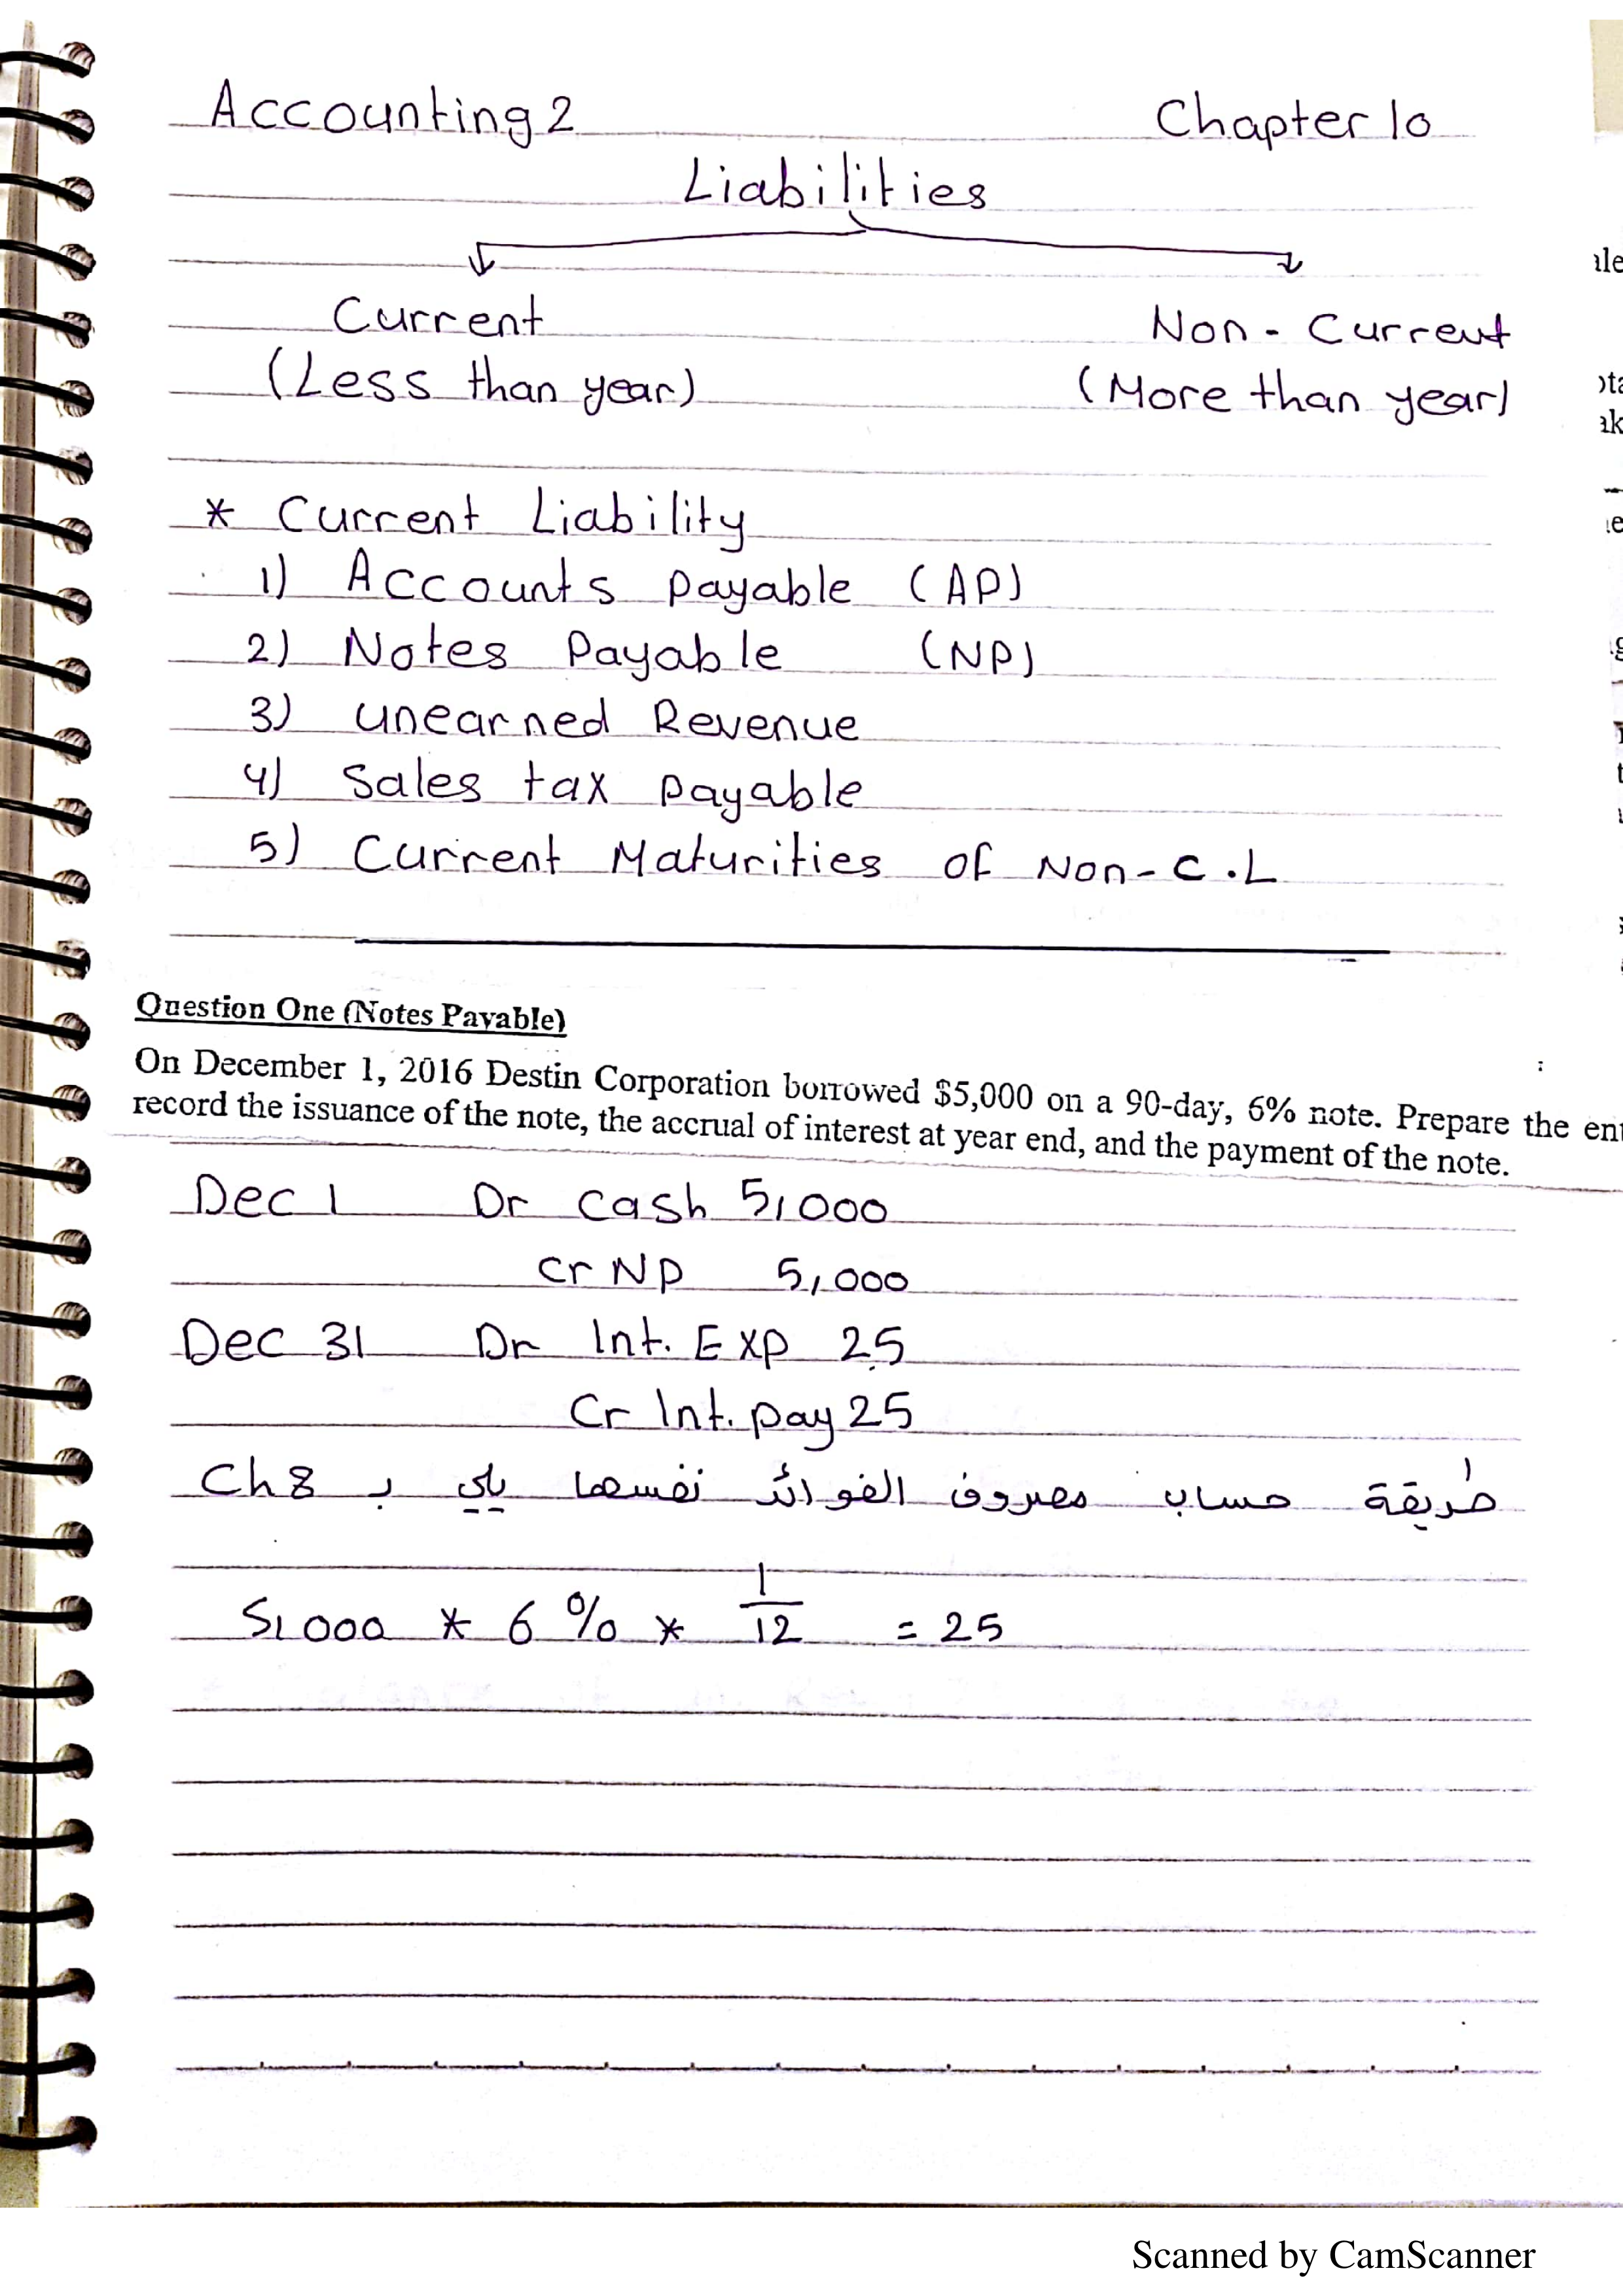 Accounting 2 Chapter 10
Liabilities
Current Non - Current
(Less than year) (More than year)
* Current Liability
1) Accounts Payable (AP)
2) Notes Payable (NP)
3) unearned Revenue
4) Sales tax payable
5) Current Maturities of Non - C.L
Question One (Notes Payable)
On December 1, 2016 Destin Corporation borrowed $5,000 on a 90-day, 6% note. Prepare the
record the issuance of the note, the accrual of interest at year end, and the payment of the note.
Dec 1 Dr cash 5,000
Cr NP 5,000
Dec 31 Dr Int. Exp 25
Cr Int. pay 25
طريقة حساب مصروف الفوائد نفسها يلي ب Ch8
5,000 * 6 % * 1/12 = 25
Scanned by CamScanner